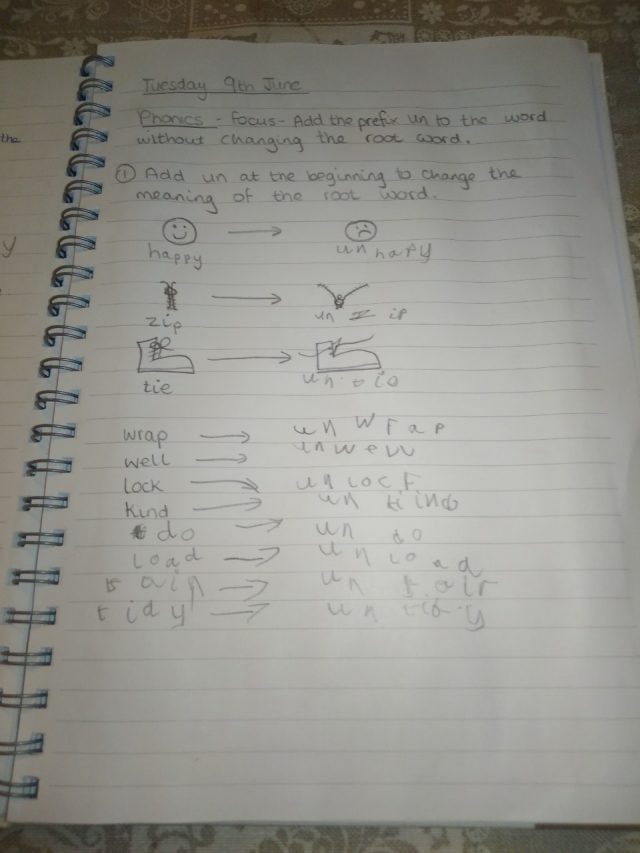 the
y
Tuesday 9th June
Phonics - focus - Add the prefix un to the word
without changing the root word.
① Add un at the beginning to change the
meaning of the root word.
happy un hapy
zip un z ip
tie un tio
wrap un w r a p
well un well
lock un lock
kind un kind
do un do
load un lo ad
un f air
tidy un tidy